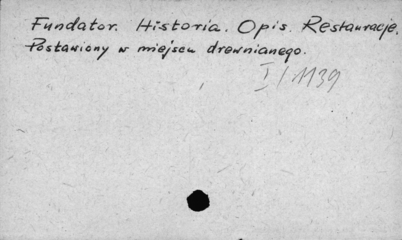 Fundator. Historia. Opis. Restauracje.
Postawiony w miejscu drewnianego.
I/1139